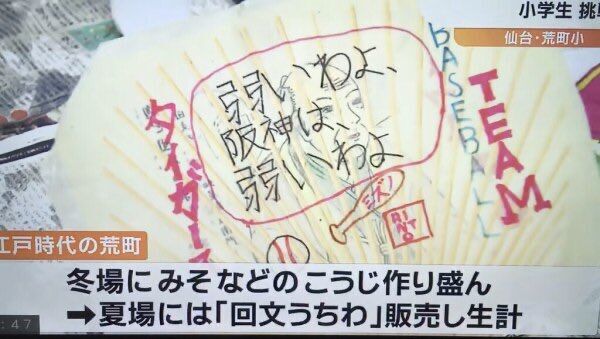 小学生 挑戦
仙台・荒町小
BASEBALL
TEAM
弱いわよ、
阪神は、
弱いわよ
タイガース
ミズノ
RINTO
江戸時代の荒町
冬場にみそなどのこうじ作り盛ん
→夏場には「回文うちわ」販売し生計
:47